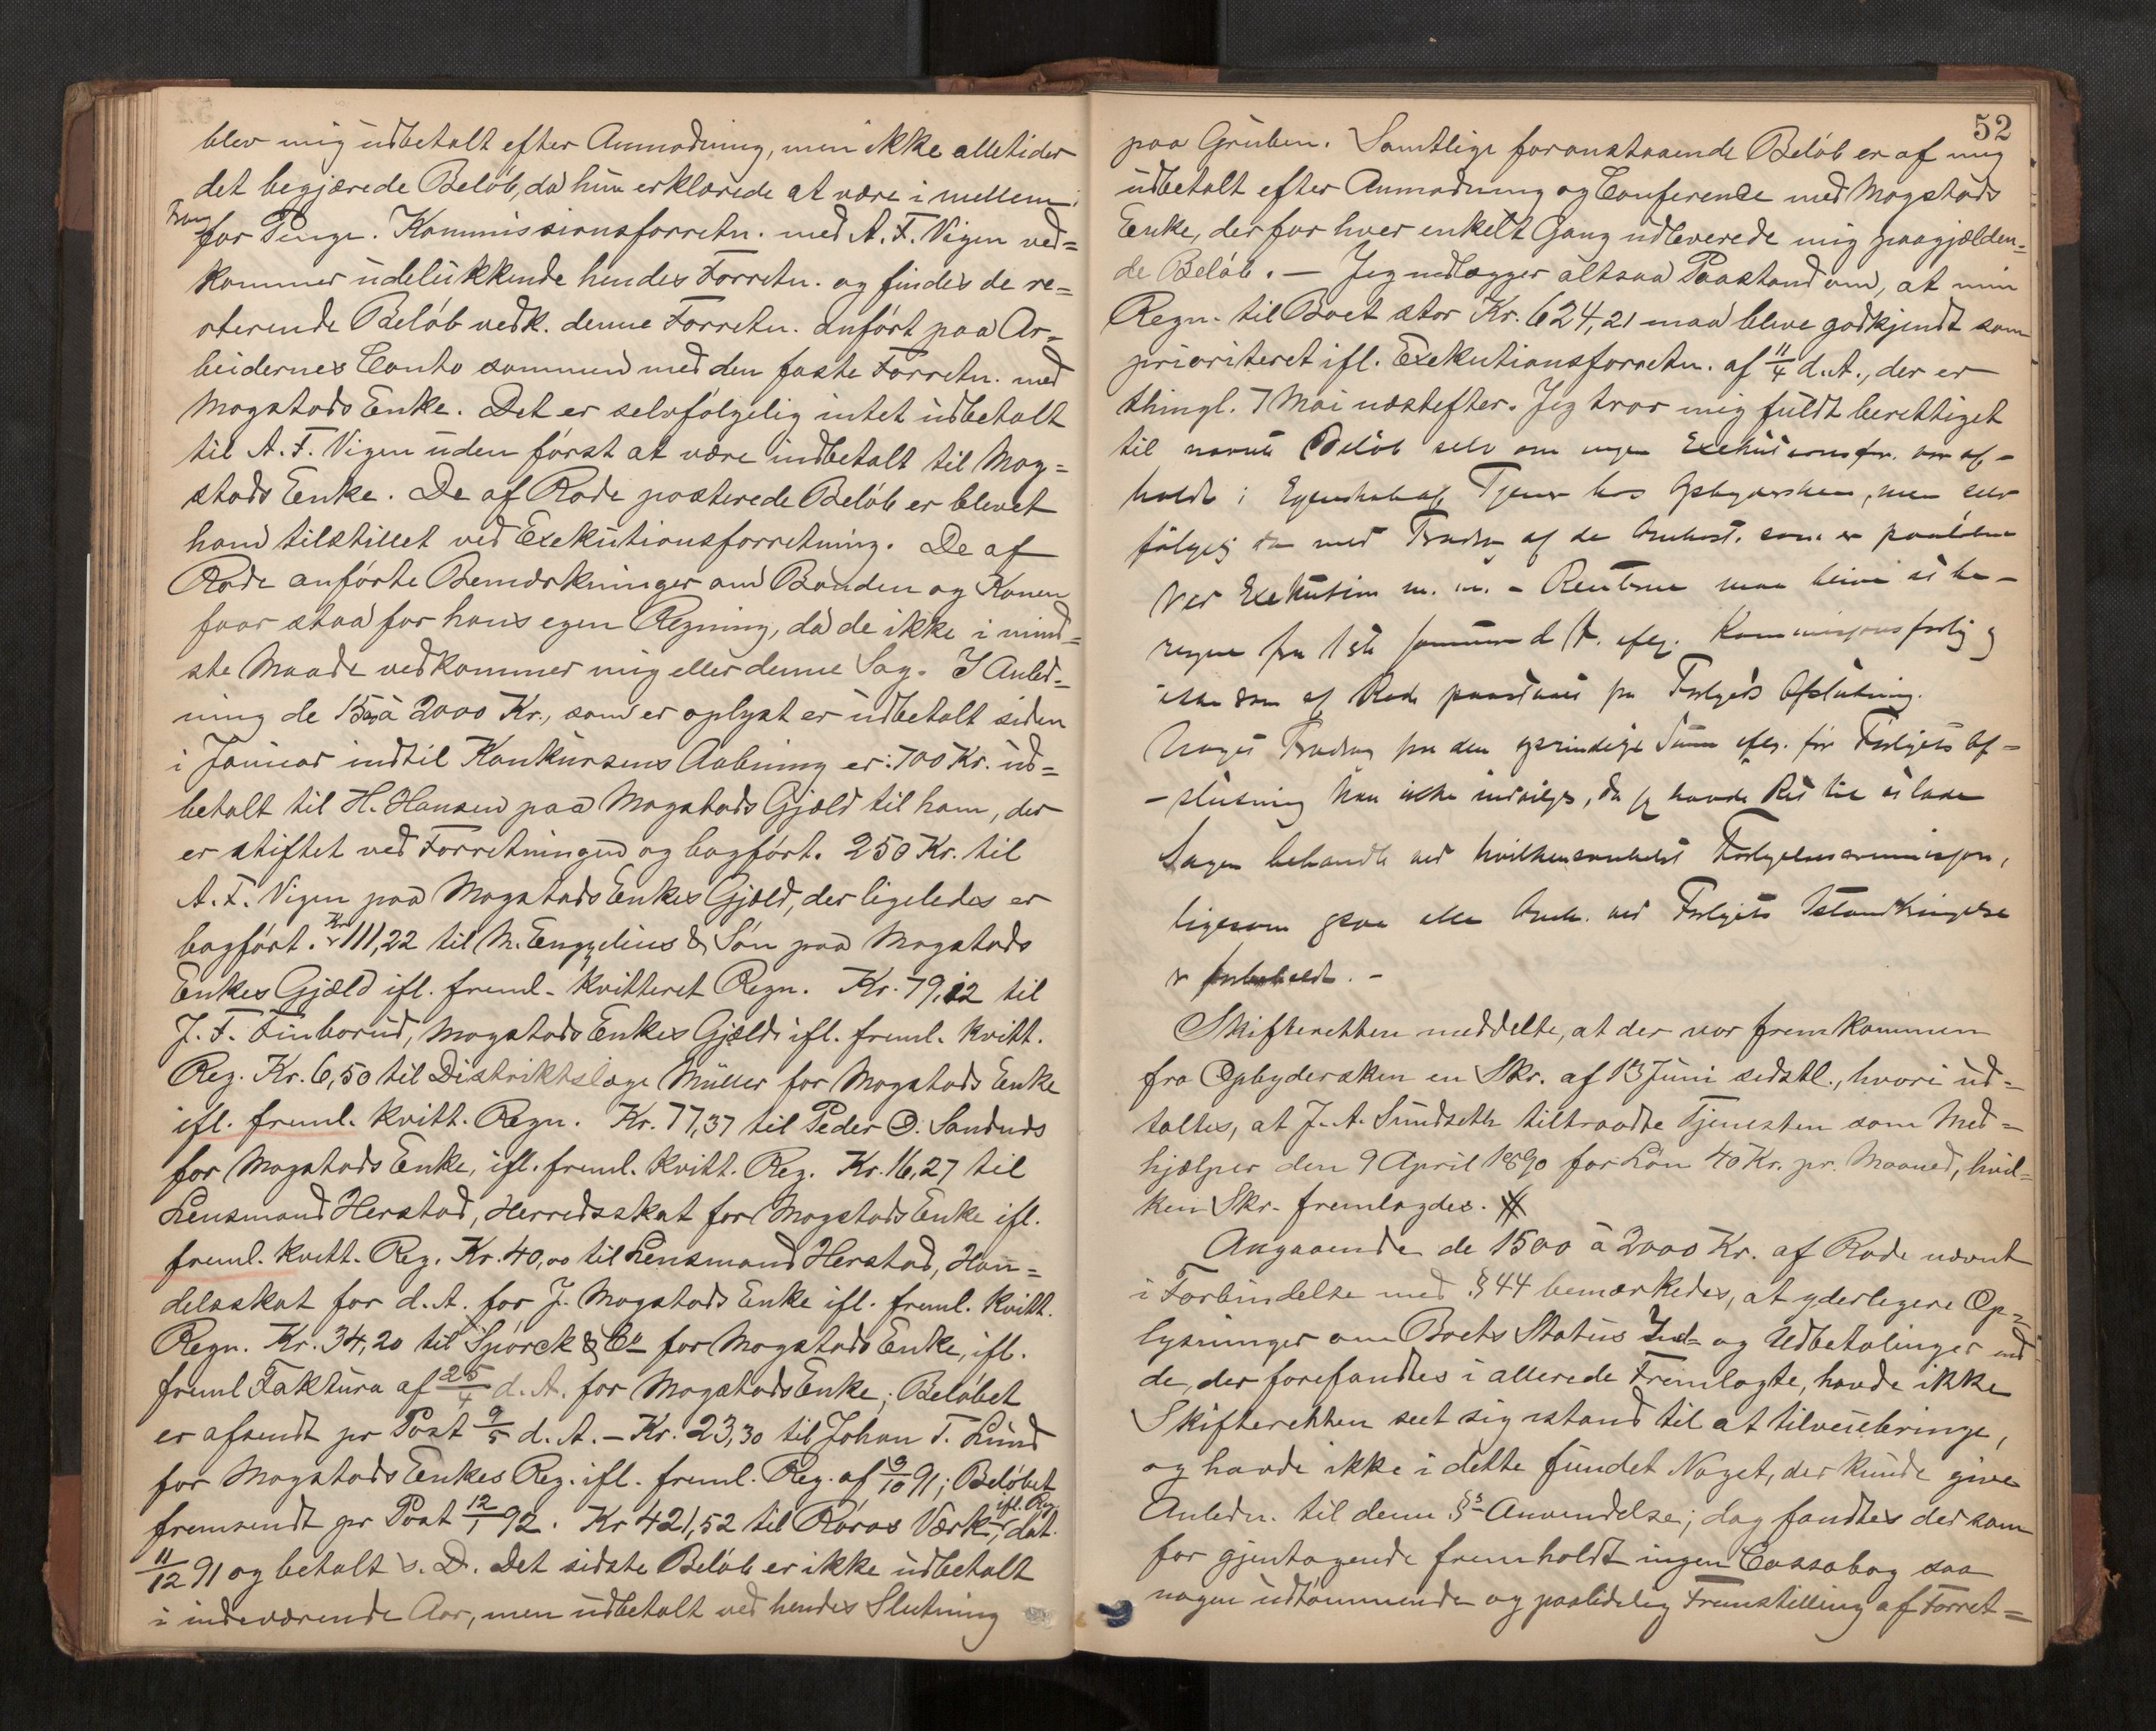 blev mig udbetalt efter Anmodning, men ikke alletider
det begjærede Beløb, da hun erklærede at være i mellem
Trang
for Penge. Kommissionsforretn. med A. F. Vigen ved=
kommer udelukkende hendes Forretn. og findes de re=
sterende Beløb vedk. denne Forretn. anført paa Ar=
beidernes Conto sammen med den faste Forretn. med
Magstads Enke. Det er selvfølgelig intet udbetalt
til A. F. Vigen uden først at være indbetalt til Mag=
stads Enke. De af Rode posterede Beløb er blevet
ham tilstillet ved Exekutionsforretning. De af
Rode anførte Bemærkninger om Bonden og Konen
faar staa for hans egen Regning, da de ikke i mind=
ste Maade vedkommer mig eller denne Sag. I Anled=
ning de 1500 à 2000 Kr., som er oplyst er udbetalt siden
i Januar indtil Konkursens Aabning er: 700 Kr. ud=
betalt til H. Hansen paa Magstads Gjæld til ham, der
er stiftet ved Forretningen og bogført. 250 Kr. til
A. F. Vigen paa Magstads Enkes Gjæld, der ligeledes er
bogført. Kr 111,22 til M. Engzelius & Søn paa Magstads
Enkes Gjæld ifl. freml. kvitteret Regn. Kr. 79,12 til
J. F. Finborud, Magstads Enkes Gjæld ifl. freml. kvitt.
Reg. Kr. 6,50 til Distriktslæge Müller for Magstads Enke
ifl. freml. kvitt. Regn. Kr. 77,37 til Peder O. Sanduds
for Magstads Enke, ifl. freml. kvitt. Reg. Kr. 16,27 til
Lensmand Herstad, Herredsskat for Magstads Enke ifl.
freml. kvitt. Reg. Kr. 40,00 til Lensmand Herstad, Han=
delsskat for d. A. for J. Magstads Enke ifl. freml. kvitt.
Regn. Kr. 34,20 til Spørck & Co for Magstads Enke, ifl.
freml Faktura af 25/4 d. A. for Magstads Enke; Beløbet
er afsendt pr Post 9/5 d. A. – Kr. 23,30 til Johan T. Lund
for Magstads Enkes Reg. ifl. freml. Reg. af 9/10 91; Beløbet
fremsendt pr Post 12/1 92. Kr 421,52 til Røros Værk, ifl. Reg. dat.
11/12 91 og betalt s. D. Det sidste Beløb er ikke udbetalt
i indeværende Aar, men udbetalt ved hendes Slutning
52
paa Gruben. Samtlige foranstaaende Beløb er af mig
udbetalt efter Anmodning og Conference med Magstads
Enke, der for hver enkelt Gang udleverede mig paagjælden=
de Beløb. – Jeg nedlægger altsaa Paastand om, at min
Regn. til Boet stor Kr. 624,21 maa blive godkjendt som
prioriteret ifl. Exekutionsforretn. af 11/4 d. A., der er
thingl. 7 Mai næstefter. Jeg tror mig fuldt berettiget
til nævnte Beløb selv om ingen Exekutionsfor. var af-
holdt i Egenskab af Tjener hos Opbydersken, men selv
følgelig da med Fradrag af de Omkost. som er paaløbne
ved Exekution m. m. – Renterne maa blive at be-
regne fra 1ste Januar d. A. Kommissionsforlig
ikke som af Rode paastaaet fra Forligets Afslutning.
Noget Fradrag fra den oprindelige Sum før Forligets Af-
-slutning kan ikke indvilges, da jeg havde Ret til at lade
Sagen behandle ved hvilkensomhelst Forligelseskommission,
ligesom ved Forligets Istandbringelse
er forbeholdt. –
Skifteretten meddelte, at der var fremkommen
fra Opbydersken en Skr. af 13 Juni sidstl., hvori ud=
taltes, at J. A. Sundseth tiltraadte Tjenesten som Med=
hjælper den 9 April 1890 for Løn 40 Kr. pr. Maaned, hvil=
ken Skr. fremlagdes.
Angaaende de 1500 à 2000 Kr. af Rode nævnt
i Forbindelse med § 44 bemærkedes, at yderligere Op=
lysninger om Boets Status Ind= og Udbetalinger end
de, der forefandtes i allerede Fremlagte, havde ikke
Skifteretten seet sig istand til at tilveiebringe,
og havde ikke i dette fundet Noget, der kunde give
Anledn. til denne §s Anvendelse; dog fandtes der som
for gjentagende fremholdt ingen Cassabog saa
nogen udtømmende og paalidelig Fremstilling af Forret=